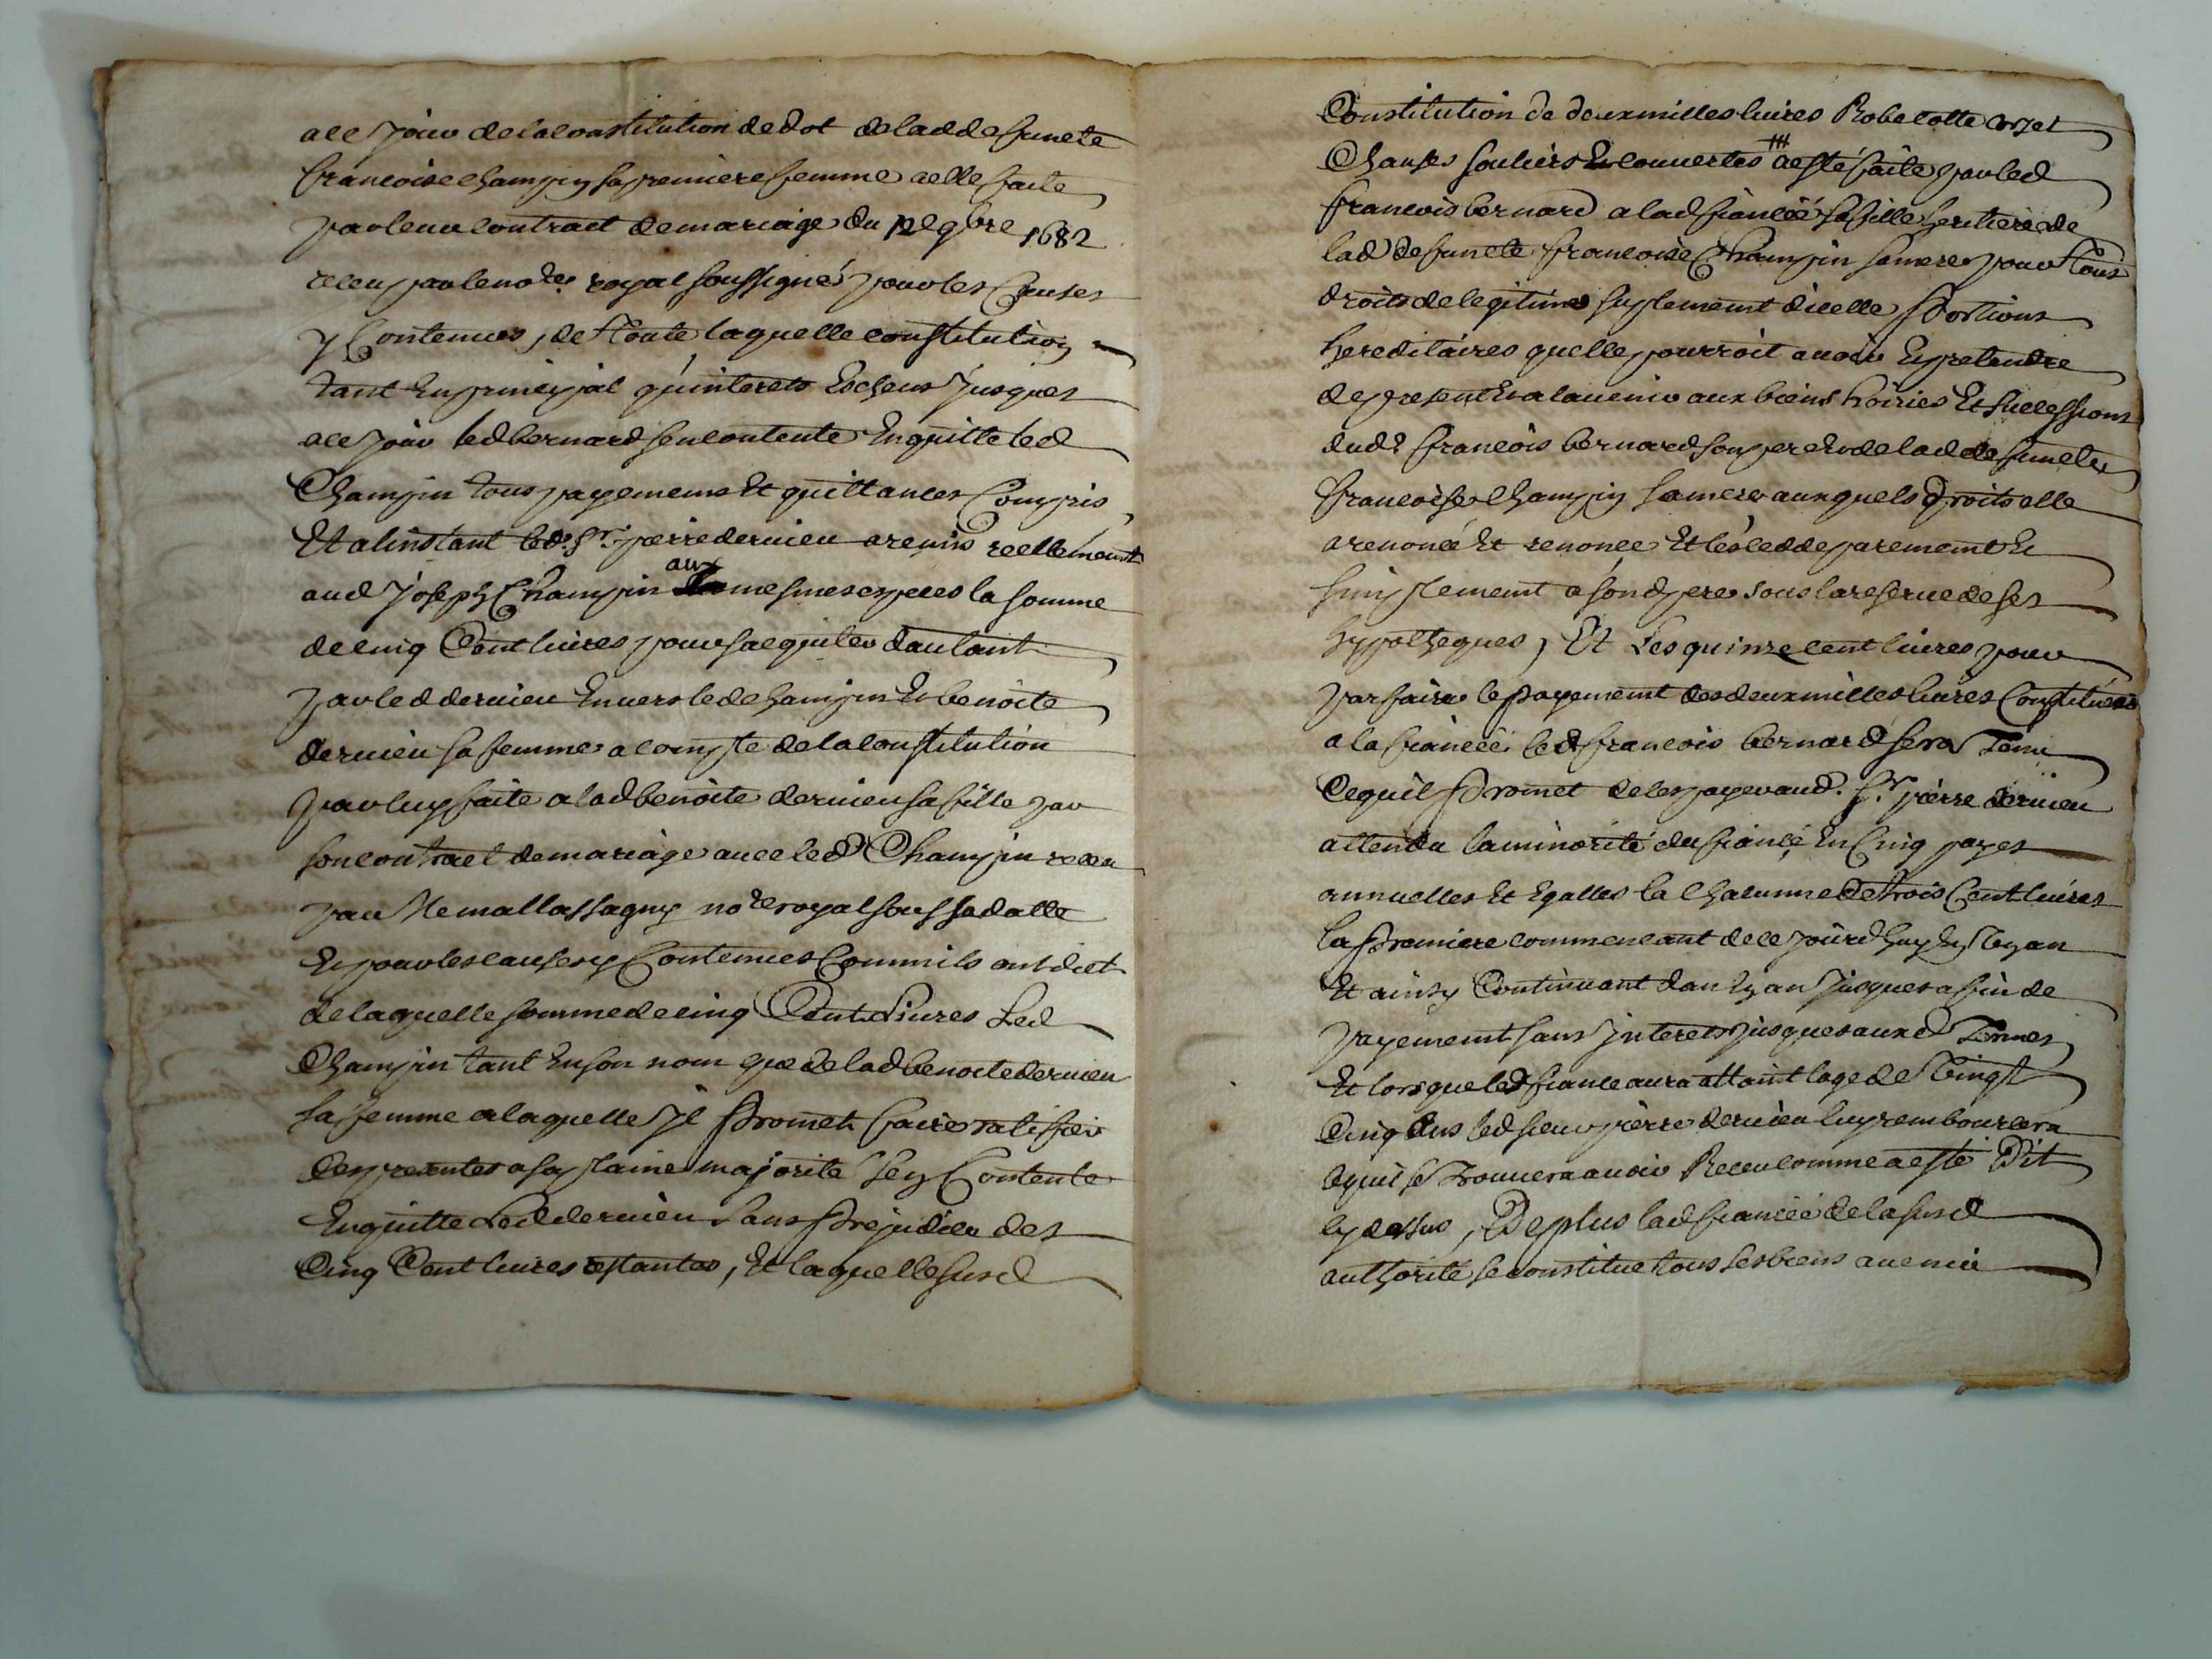 a ce jour de la constitution de dot de lad defuncte
francoise champin sa premiere femme a elle faite
par leur contract de mariage du 12e 9bre 1682
receu par le nore royal soussigné pour les causes
y contenues, de toute laquelle constitution
tant en principal qu'interets escheus jusques
a ce jour led bernard sen contente en quitte led
Champin tous payements et quittances compris
Et a linstant led. Sr. pierre dervieu a remis reellement
aud joseph Champin aux mesmes especes la somme
de cinq Cent livres pour sacquiter dautant
par led dervieu envers led champin et benoite
dervieu sa femme a compte de la constitution
par luy faite a lad benoite dervieu sa fille par
son contract de mariage avec led Champin receu
par Me mallassagny nore royal sous sa datte
et pour les causes y contenues comm'ils ont dict
de laquelle somme de cinq Cent Livres Led
Champin tant en son nom que de lad benoite dervieu
sa femme a laquelle jl promet faire ratifier
ces presentes a sa plaine majorité s'en contente
en quitte Led dervieu sans prejudice des
Cinq Cent livres restantes, Et laquelle susd
Constitution de deux milles livres Robe cotte corset
Chausses souliers et couvertes a esté faite par led
francois bernard a lad fiancéé sa fille heritiere de
lad defuncte francoise Champin sa mere pour tous
droits de legitime suplement d'icelle portions
hereditaires quelle pourroit avoir et pretendre
de present et a lavenir aux biens hoiries Et successions
dudt francois bernard son pere et de lad defuncte
francoise Champin sa mere auxquels droits elle
a renoncé Et renonce Et les cedde purement et
simplement a sond pere sous la reserve de ses
hypotheques, Et Les quinze cent livres pour
parfaire le payement des deux milles livres constituées
a la fiancéé led francois bernard sera Tenu
Ce quil promet de les payer aud. Sr pierre dervieu
attendu la minorité du fiancé en cinq payes
annuelles Et Egalles la chacunne de trois Cent livres
la premiere commencant de ce jourdhuy en Un an
Et ainsy Continuant dan en an jusques a fin de
payement sans jnterets jusques auxd Termes
Et lorsque led fiance aura attaint lage de Vingt
Cinq ans led sieur pierre dervieu luy remboursera
ce quil se Trouvera avoir Receu comme a esté Dit
cy dessus, De plus lad fiancéé de la susd
authorité se constitue tous ses biens avenir